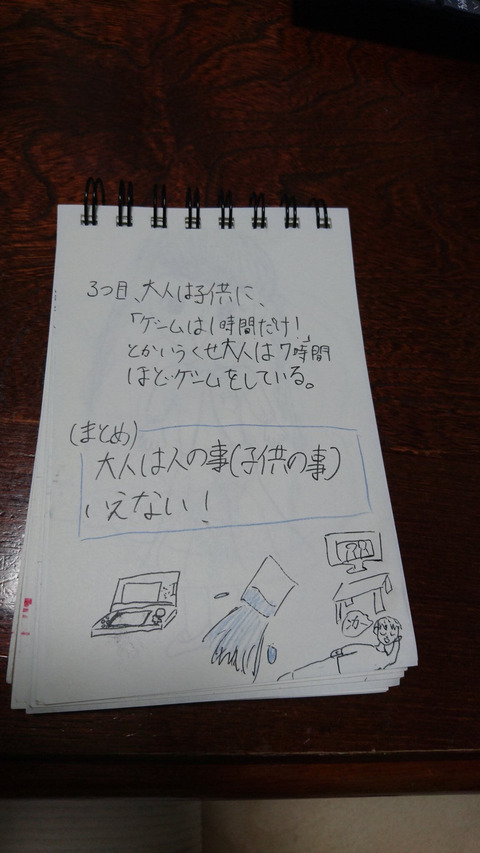 3つ目、大人は子供に、
「ゲームは1時間だけ!」
とかいうくせ大人は7時間
ほどゲームをしている。
(まとめ)
大人は人の事(子供の事)
いえない!